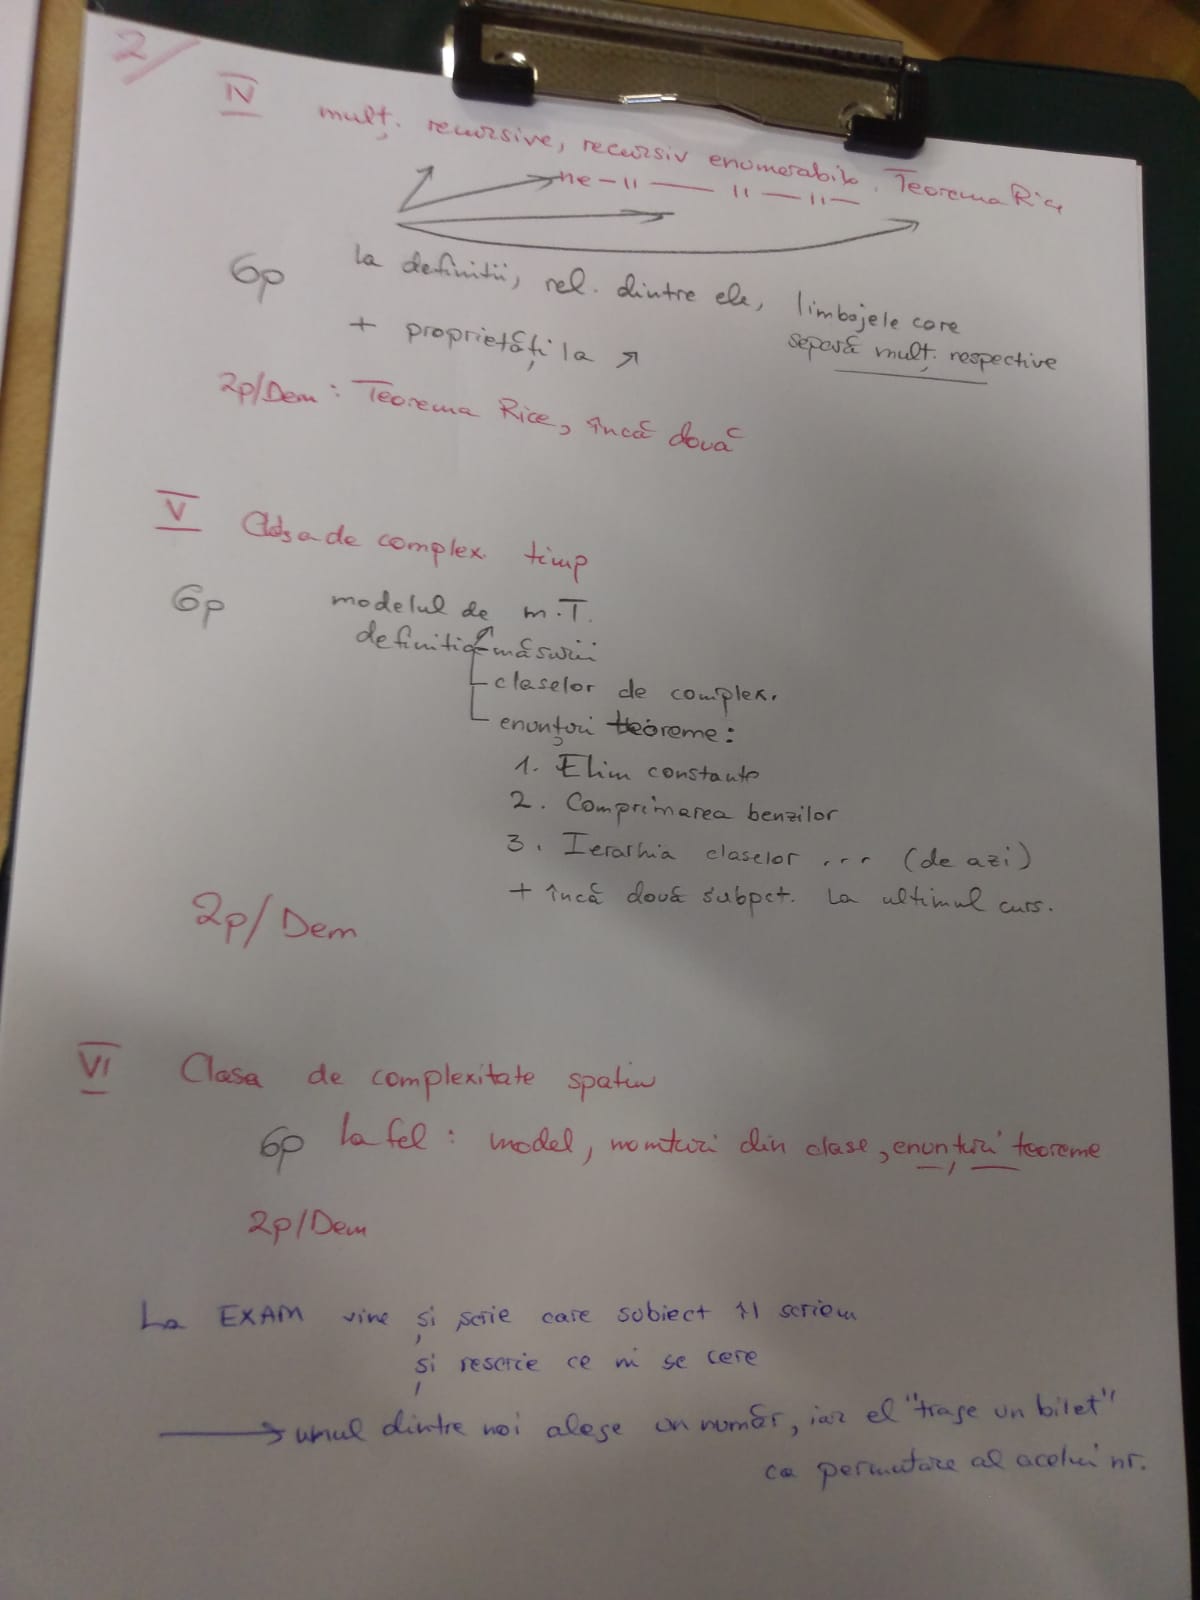 2/
IV mulț. recursive, recursiv enumerabile. Teorema Rice
ne - 11 — 11 — 11 —
6p la definitii, rel. dintre ele, limbajele care
separă mulț. respective
+ proprietăți la ↗
2p/Dem: Teorema Rice, încă două
V Clasa de complex. timp
6p modelul de m.T.
definitia măsurii
claselor de complex.
enunțuri teoreme:
1. Elim constante
2. Comprimarea benzilor
3. Ierarhia claselor ... (de azi)
+ încă două subpct. la ultimul curs.
2p/Dem
VI Clasa de complexitate spatiu
6p la fel: model, din clase, enunțuri teoreme
2p/Dem
La EXAM vine și scrie care subiect îl scriem
și rescrie ce ni se cere
→ unul dintre noi alege un număr, iar el "trage un bilet"
ca permutare al acelui nr.